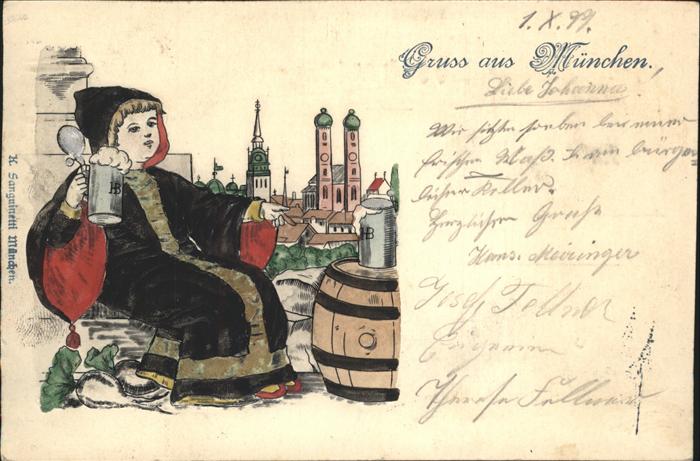 1. X. 99.
Gruss aus München.
Liebe Johanna!
Wir sitzen soeben bei einer
frischen Maß. beim bürger
licher Keller.
Herzlichen Gruß
Hans. Meiringer
Josef Fellner
Therese Fellner
HB
HB
K. Sanguinetti München.